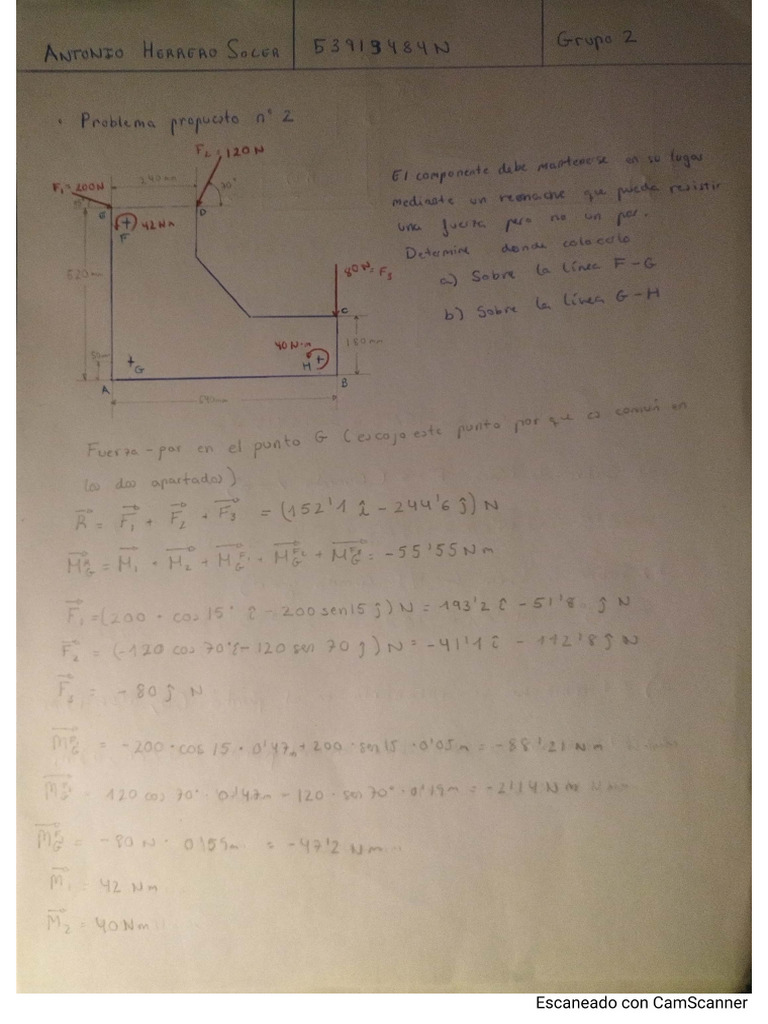 ANTONIO HERRERO SOLER
53919484N
Grupo 2
• Problema propuesto n° 2
F₂ = 120N
F₁=200N
240mm
70°
15°
E
D
42Nm
F
520mm
80N=F₃
C
40N·m
180mm
50mm
G
H
A
B
El componente debe mantenerse en su lugar
mediante un remache que pueda resistir
una fuerza pero no un par.
Determine donde colocarlo
a) Sobre la línea F-G
b) Sobre la línea G-H
Fuerza-par en el punto G (escojo este punto por que es común en
los dos apartados)
R = F₁ + F₂ + F₃ = (152'1 î - 244'6 ĵ) N
M_G^R = M₁ + M₂ + M_G^F₁ + M_G^F₂ + M_G^F₃ = -55'55 Nm
F₁ = (200 · cos 15° î - 200 sen 15 ĵ) N = 193'2 î - 51'8 ĵ N
F₂ = (-120 cos 70° î - 120 sen 70 ĵ) N = -41'1 î - 112'8 ĵ N
F₃ = -80 ĵ N
M_G^F₁ = -200 · cos 15 · 0'47m + 200 · sen 15 · 0'05m = -88'21 Nm
M_G^F₂ = 120 cos 70° · 0'47m - 120 · sen 70° · 0'19m = -2'14 Nm
M_G^F₃ = -80 N · 0'59m = -47'2 Nm
M₁ = 42 Nm
M₂ = 40 Nm
Escaneado con CamScanner